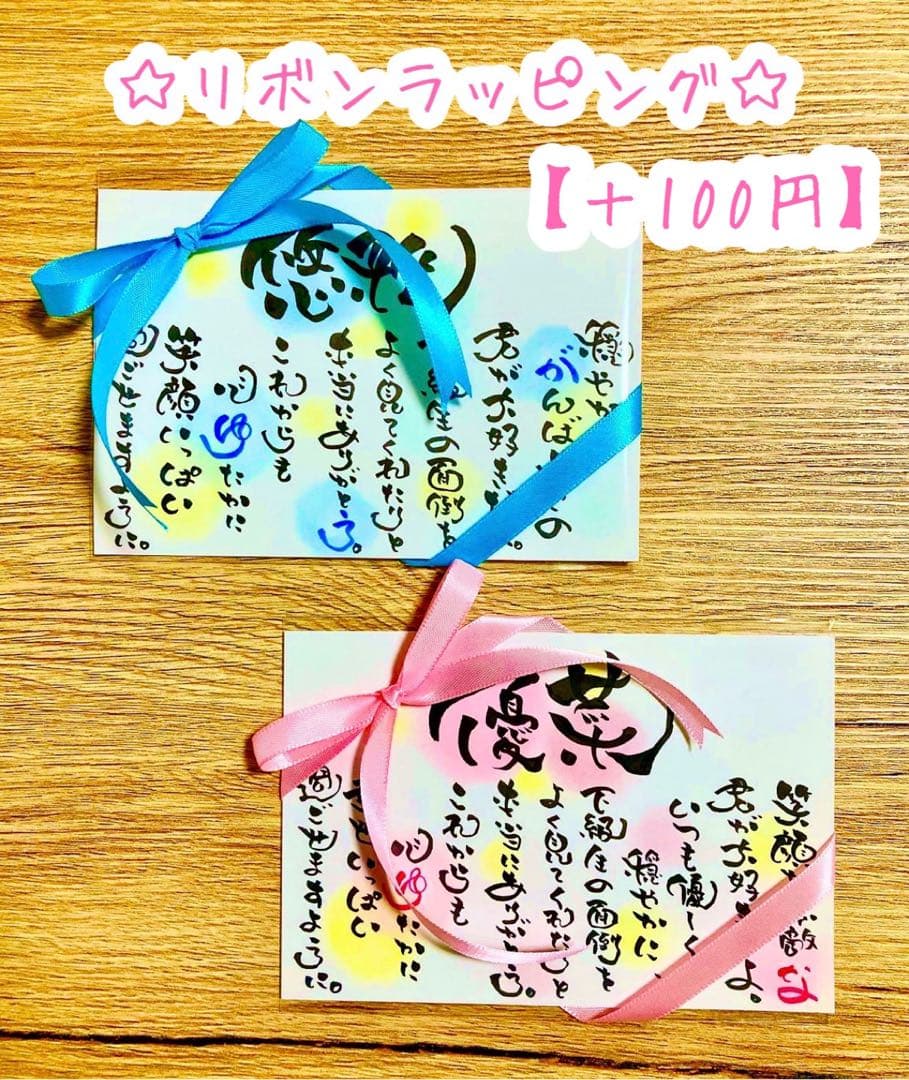 ☆リボンラッピング☆
【+100円】
悠
穏やか
がんば の
君が大好き
級生の面倒を
よく見てくれたこと
本当にありがとう。
これからも
心ゆたかに
笑顔いっぱい
過ごせますように。
優菜
笑顔 敵な
君が大好き よ。
いつも優しく
穏やかに、
下級生の面倒を
よく見てくれたこと
本当にありがとう。
これからも
心ゆたかに
せいっぱい
過ごせますように。